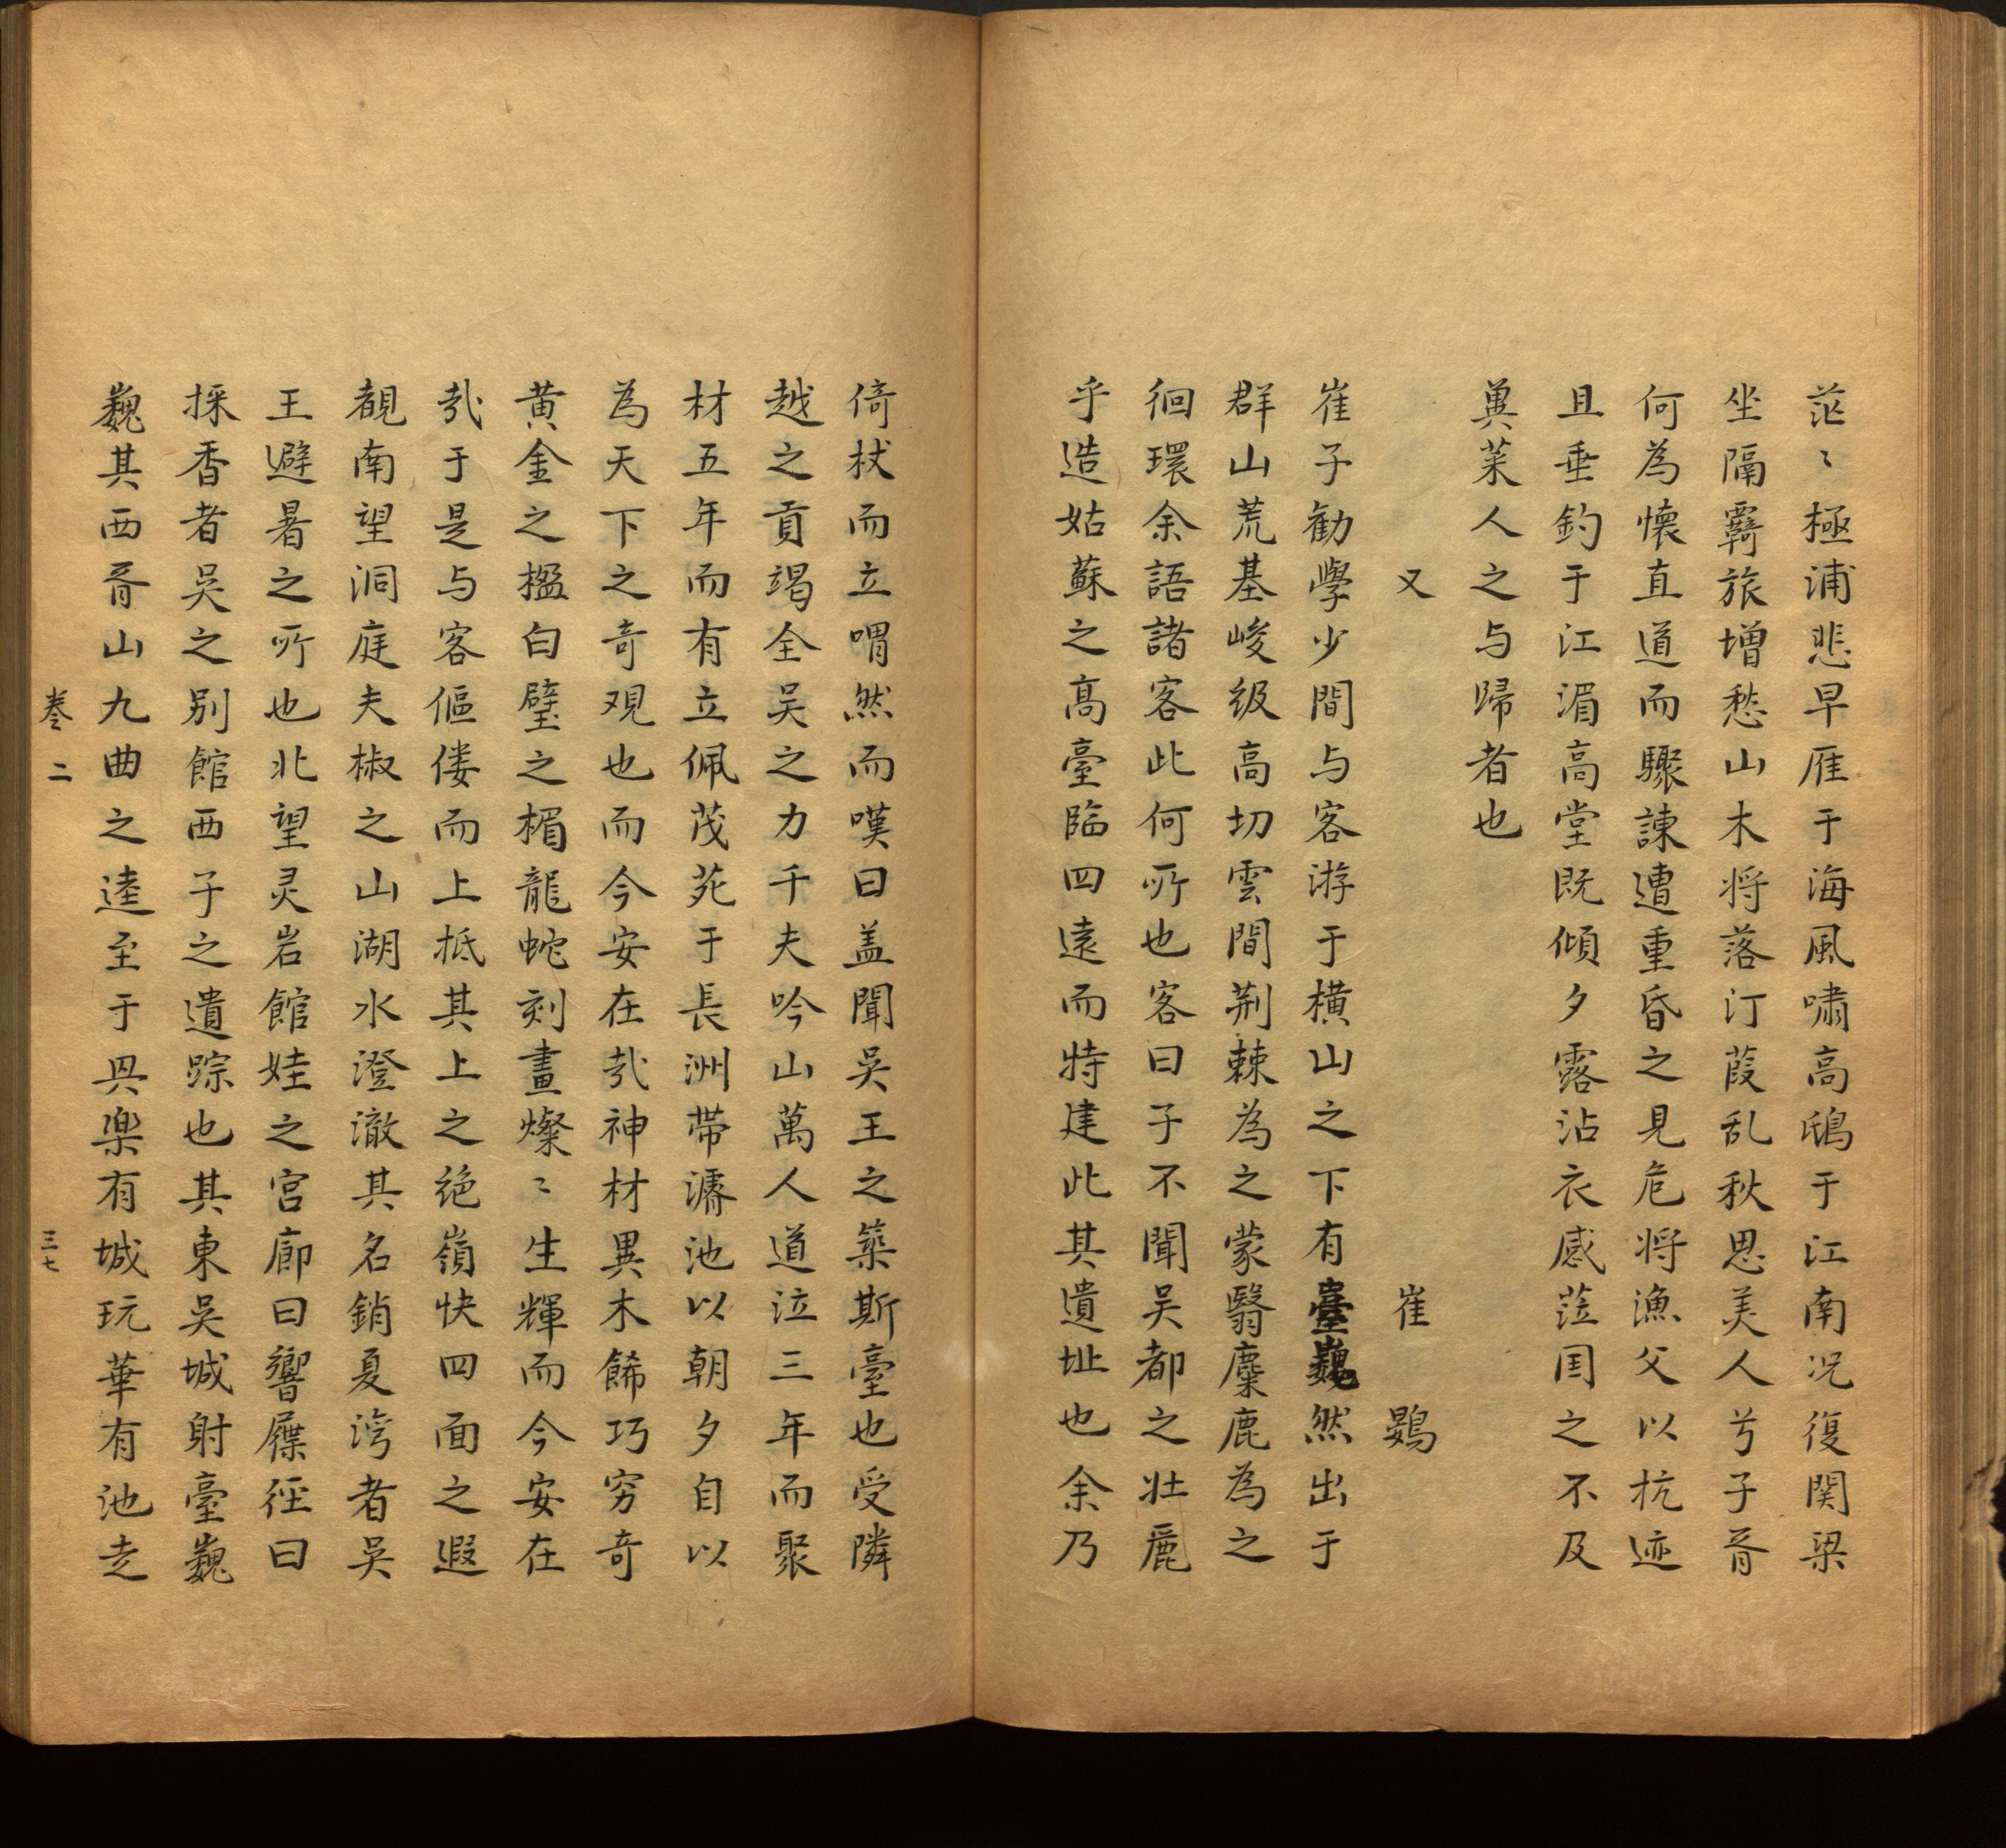 茫〻極浦悲早雁于海風嘯高鴟于江南况復関梁
坐隔羇旅增愁山木将落汀葭乱秋思美人兮子胥
何為懐直道而驟諌遭重昏之見危将漁父以抗迹
且垂釣于江湄高堂既傾夕露沾衣感蒞国之不及
與莱人之与歸者也
又　崔鷃
崔子勧學少間与客游于横山之下有臺巍然出于
群山荒基峻级高切雲間荆棘為之蒙翳麋鹿為之
徊環余語諸客此何所也客曰子不聞吴都之壮麗
乎造姑蘇之高臺臨四遠而特建此其遺址也余乃
倚杖而立喟然而嘆曰盖聞吴王之築斯臺也受隣
越之貢竭全吴之力千夫吟山萬人道泣三年而聚
材五年而有立佩茂苑于長洲帶濤池以朝夕自以
為天下之奇观也而今安在㢤神材異木餙巧穷奇
黄金之楹白璧之楣龍蛇刻畫燦〻生輝而今安在
㢤于是与客傴僂而上抵其上之绝嶺快四面之遐
覩南望洞庭夫椒之山湖水澄澈其名銷夏湾者吴
王避暑之所也北望灵岩館娃之宫廊曰響屧径曰
採香者吴之别館西子之遺踪也其東吴城射臺巍
巍其西胥山九曲之逵至于與樂有城玩華有池走
卷二　三七